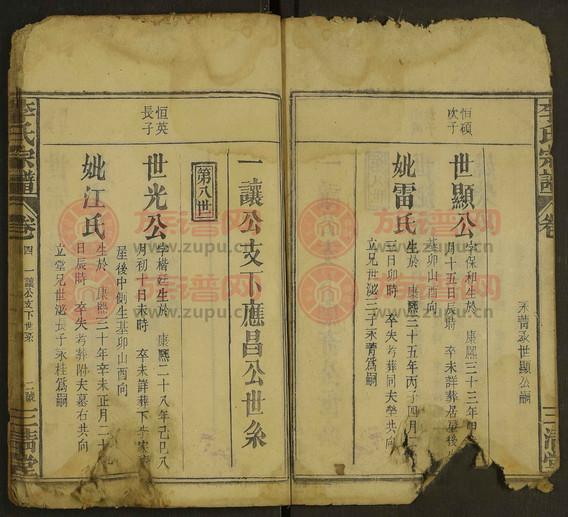 李氏宗譜
卷
恒碩
次子
世顯公
字保和生於 康熙三十三年甲
月十五日
時 卒未詳葬居屋後
基卯山酉向
妣雷氏
生於 康熙二十五年丙子四月
三日卯時 卒失考葬同夫塋共向
立兄世泌三子永菁爲嗣
永菁承世顯公嗣
三清堂
一讓公支下應昌公世系
第八世
恒英
長子
世光公
字楷廷生於 康熙二十八年己巳八
月初十日未時 卒未詳葬下
屋後中側生基卯山酉向
妣江氏
生於 康熙三十年辛未正月二十
日辰時 卒失考葬附夫墓右共向
立堂兄世泌長子永桂爲嗣
李氏宗譜
卷四
一讓公支下世系
二號
三清堂
族譜网
www.zupu.cn
族譜网
www.zupu.cn